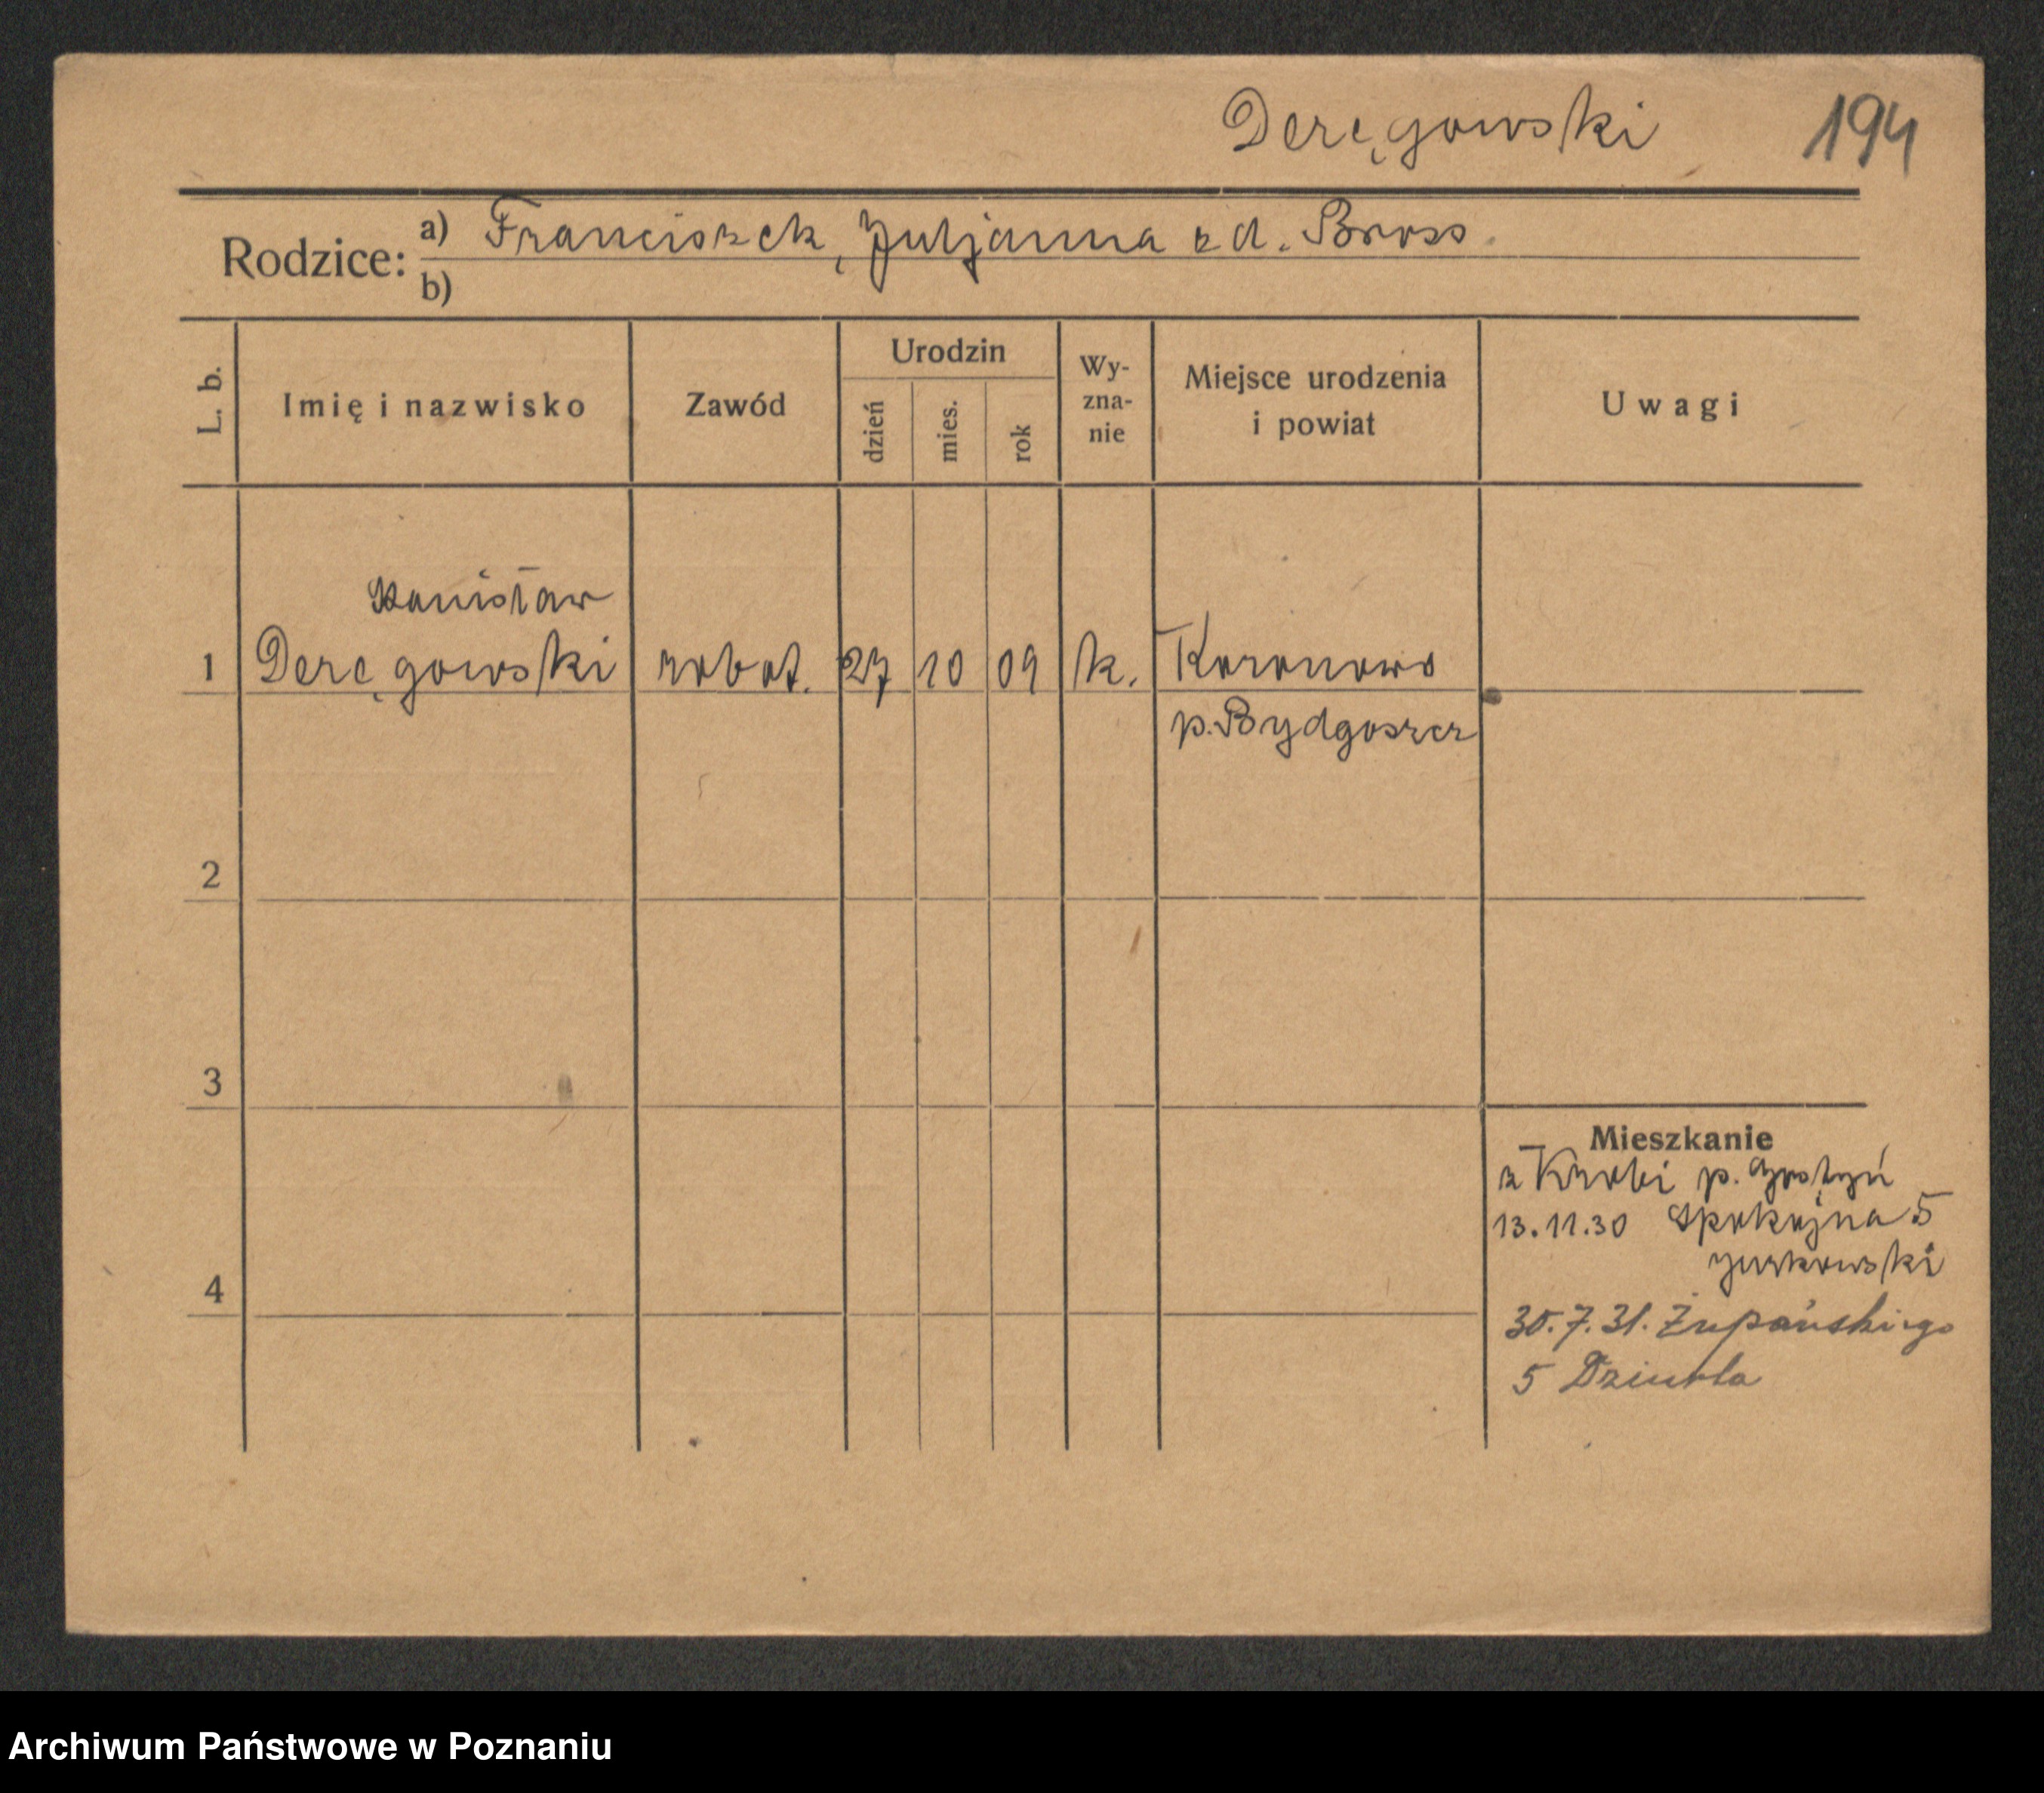 Deręgowski 194
Rodzice: a) Franciszek, Juljanna z d. Bross.
b)
L. b. Imię i nazwisko Zawód Urodzin dzień mies. rok Wy-zna-nie Miejsce urodzenia i powiat Uwagi
Stanisław
1 Deręgowski robot. 27 10 09 k. Koronowo
p. Bydgoszcz
2
3
Mieszkanie
z Krobi p. Gostyń
13.11.30 Spokojna 5
4
30.7.31. Żupańskiego
5
Archiwum Państwowe w Poznaniu